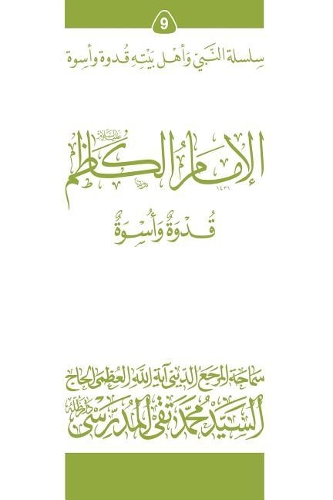 9
سلسلة النبي وأهل بيته قدوة وأسوة
الإمام الكاظم عليه السلام
١٤٣١
قُدْوَةٌ وَأُسْوَةٌ
سماحة المرجع الديني آية الله العظمى الحاج
السيد محمد تقي المدرسي